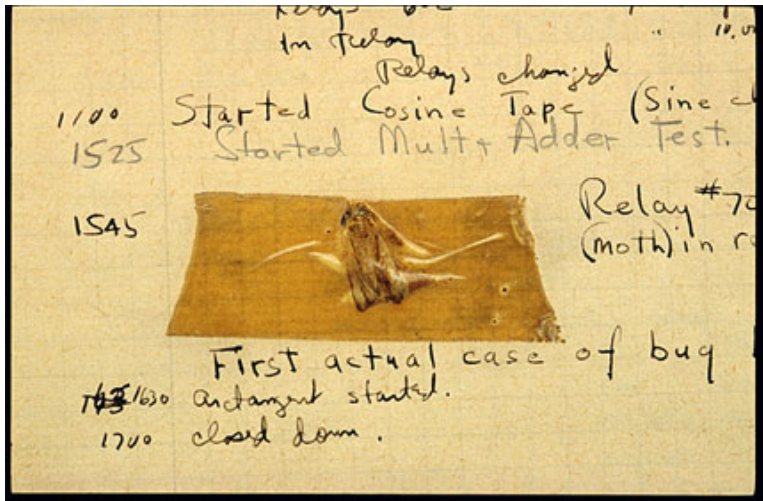 Relays
" 10,00
in Relay
Relays changed
1100 Started Cosine Tape (Sine c
1525 Started Mult+ Adder Test.
1545 Relay #70
(moth) in re
First actual case of bug
1630 arctangent started.
1700 closed down.